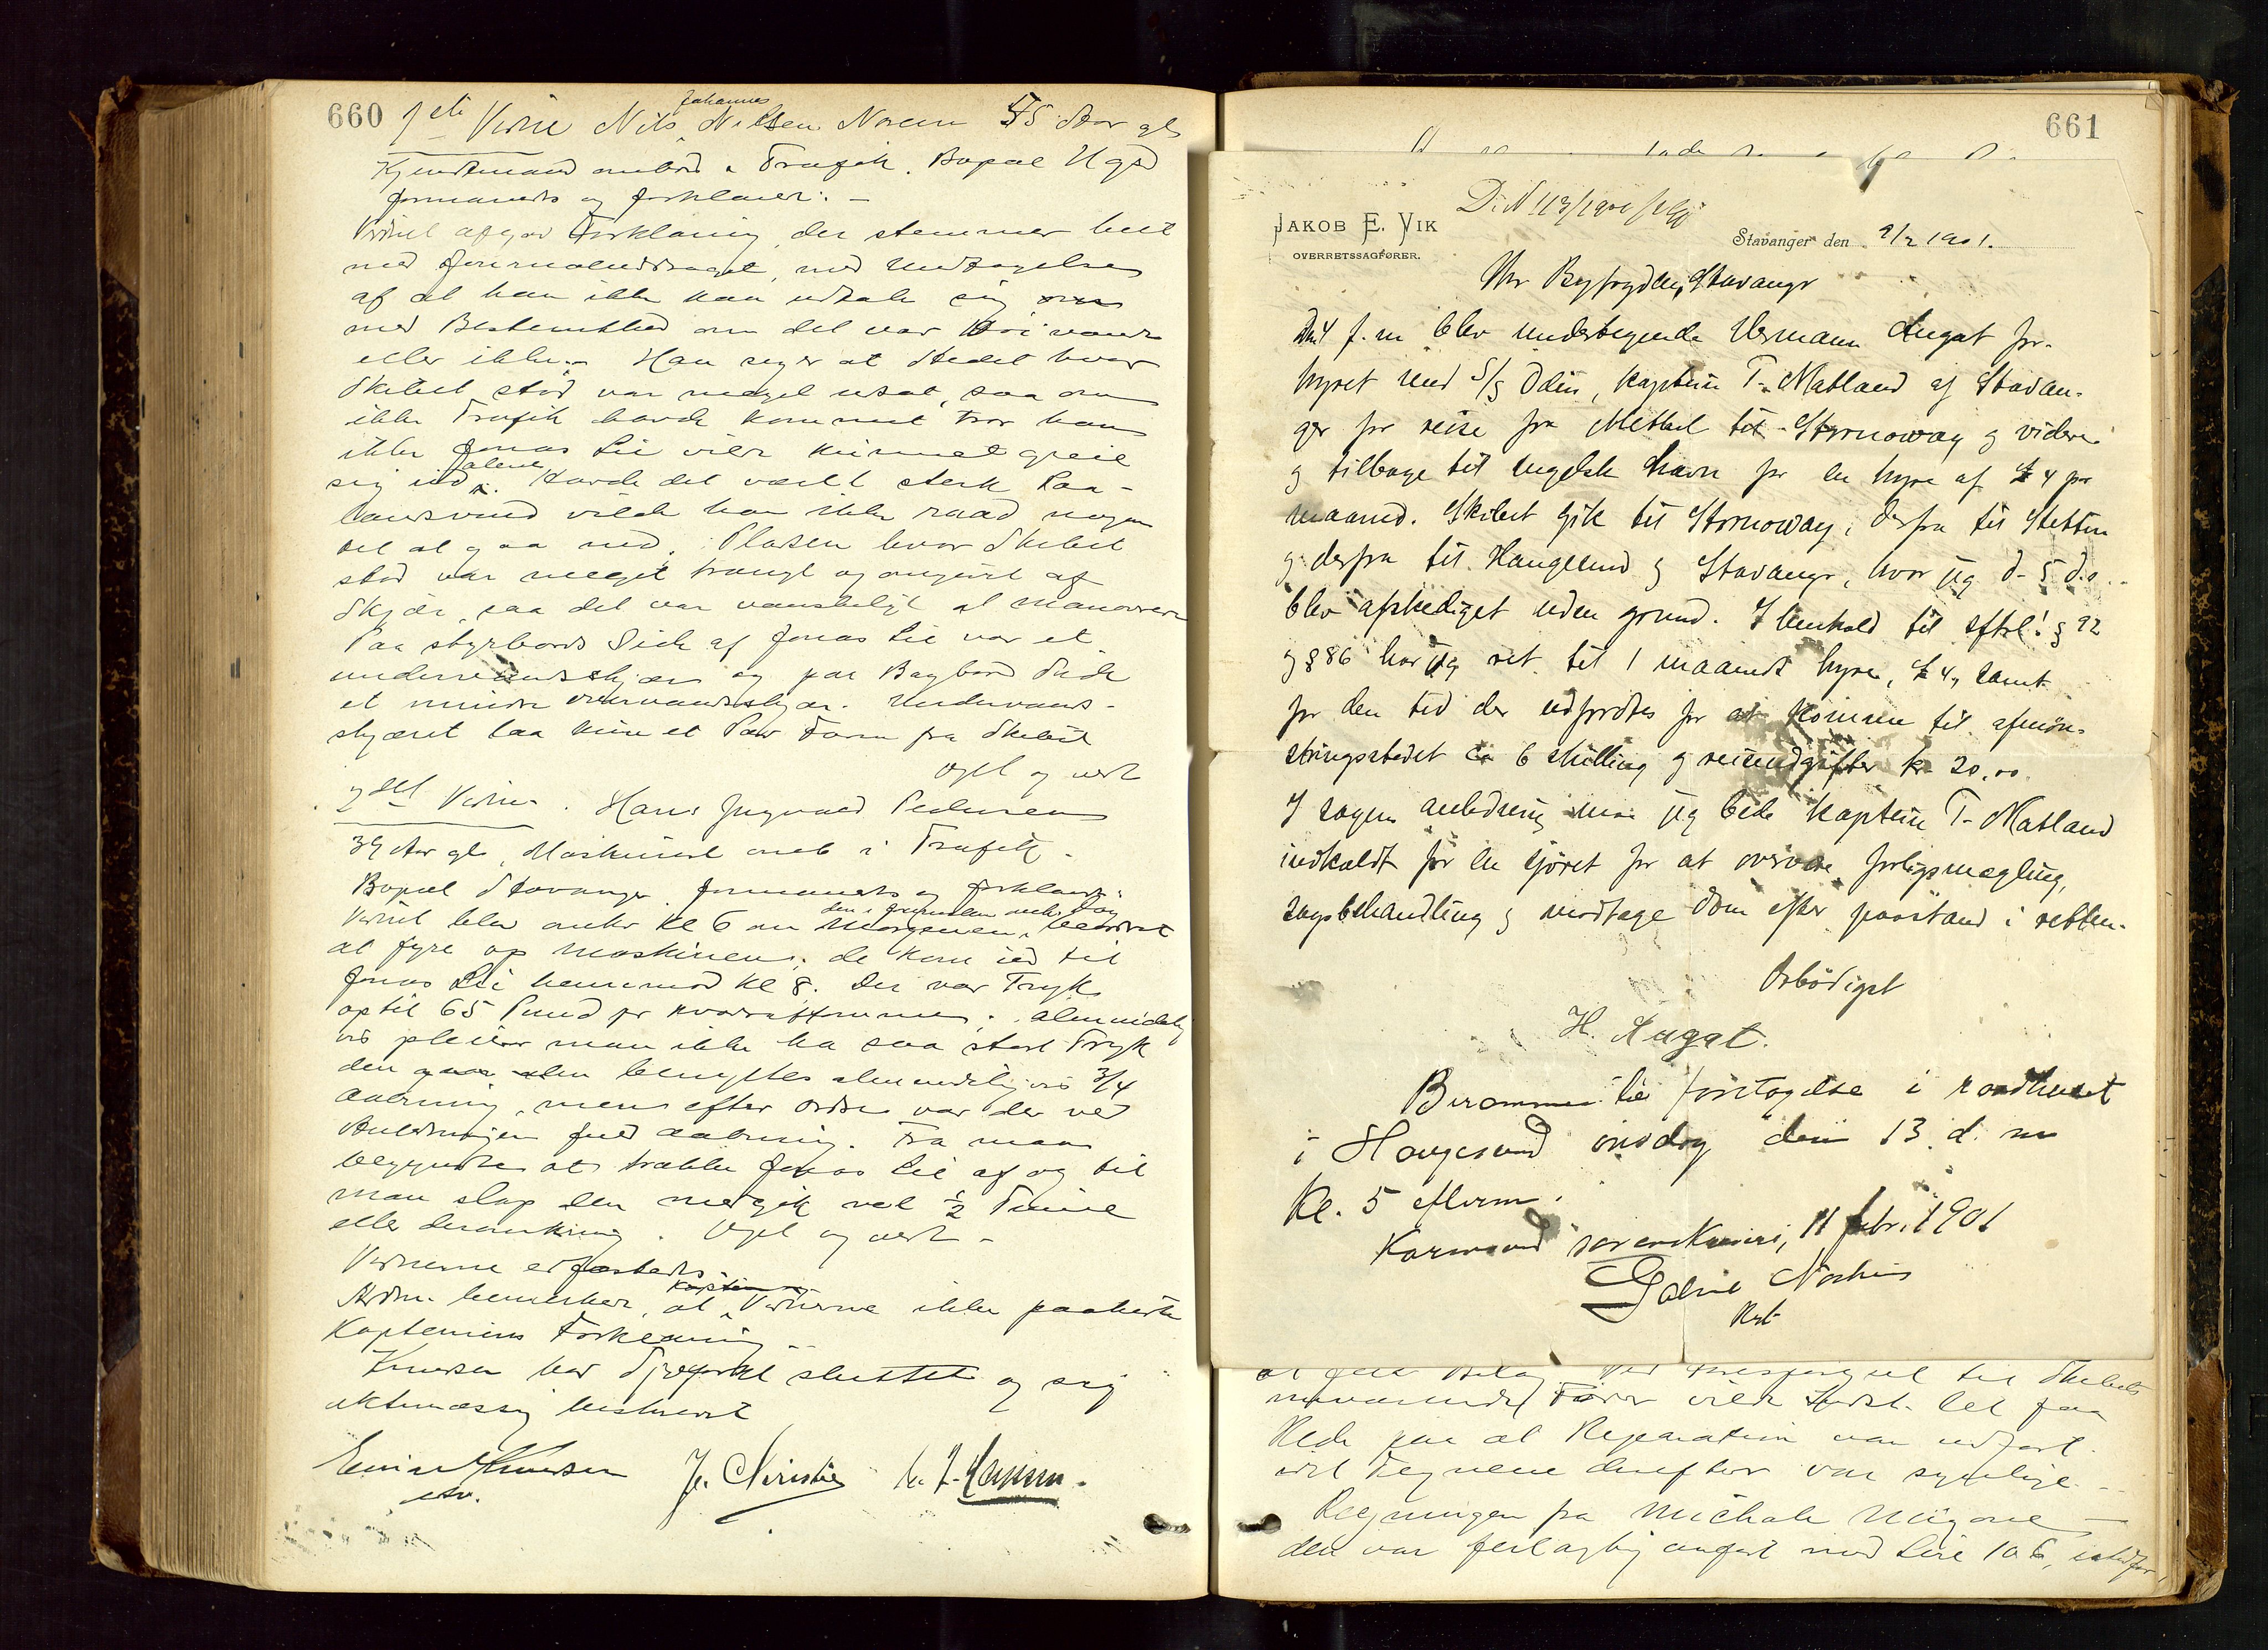 660
1ste Vidne Nils Johannes Nilsen Noreen 55 Aar gl
Kjendtmand ombord i Trafik. Bopæl Ugsd
formanedes og forklarer: –
Vidnet afgav Forklaring, der stemmer helt
med Journaluddraget, med Undtagelse
af at han ikke kan udtale sig
med Bestemthed om det var Høivande
eller ikke. – Han siger at Stedet hvor
Skibet stod var meget udsat, saa om
ikke Trafik havde kommet tror han
ikke Jonas Lie vilde kunnet greie
sig ud alene. Havde det været sterk Paa-
landsvind vilde han ikke raad nogen
til at gaa ned. Pladsen hvor Skibet
stod var meget trangt og omgivet af
Skjær, saa det var vanskeligt at manøvrere
Paa styrbords Side af Jonas Lie var et
undervandsskjær og paa Bagbord Side
et mindre overvandsskjær. Undervands-
skjæret laa kun et Par Favn fra Skibet
Oplæst og vedt
2det Vidne. Hans Ingvald Pedersen
39 Aar gl, Maskinist omb i Trafik.
Bopæl Stavanger. formanedes og forklarer:
Vidnet blev kl 6 om Morgenen
at fyre op Maskinen; de kom ud til
Jonas Lie henimod kl 8. Der var Tryk
optil 65 Pund pr kvadrattomme; almindelig
vis pleier man ikke ha saa stort Tryk
den benyttes almindeligvis 3/4
Aabning, men efter Ordre var der ved
Anledningen fuld Aabning. Fra man
begyndte at trække Jonas Lie af og til
man slap den medgik vel ½ Time
eller deromkring. Opl og vedt –
Vidnerne edfæstedes.
Adm. bemerker, at Vidnerne ikke paahørte
Kapteinens Forklaring
Knudsen bad Sjøforklar sluttet og sig
aktmæssig beskrevet
Einar Knudsen
J. Christie
661
D. N 113/1901
JAKOB E. VIK
OVERRETSSAGFØRER.
Stavanger den 9/2 1901.
Hr Byfogden, Stavanger
Den 4 f. m blev undertegnede Hermann Augat for-
hyret med S/S Odin, kaptein T. Matland af Stavan-
ger for reise fra Methel til Stornoway og videre
og tilbage til engelsk havn for en hyre af £ 4 pr
maaned. Skibet gik til Stornoway, derfra til Stettin
og derfra til Haugesund og Stavanger, hvor jeg d. 5 d.s.
blev afskediget uden grund. I henhold til sjøfl. § 92
og § 86 har jeg ret til 1 maaneds hyre, £ 4, samt
for den tid der udfordres for at komme til afmøn-
stringsstedet ca 6 shilling og reiseudgifter kr 20.00
I sagens anledning maa jeg bede kaptein T. Matland
indkaldt for en sjøret for at overvære forligsmægling,
sagsbehandling og modtage dom efter paastand i retten.
Ærbødigst
H. Augat.
Berammes til foretagelse i raadhuset
i Haugesund onsdag den 13 d. m
Kl. 5 efterm.
Karmsund sorenskriveri, 11 febr. 1901
Gabriel
Kst
nuværende Fører vilde
Rede paa at Reparation var udført.
idet Tegnene derefter var synlige. –
Regningen fra Michale Migone –
den var feilagtig angivet med Lire 106,